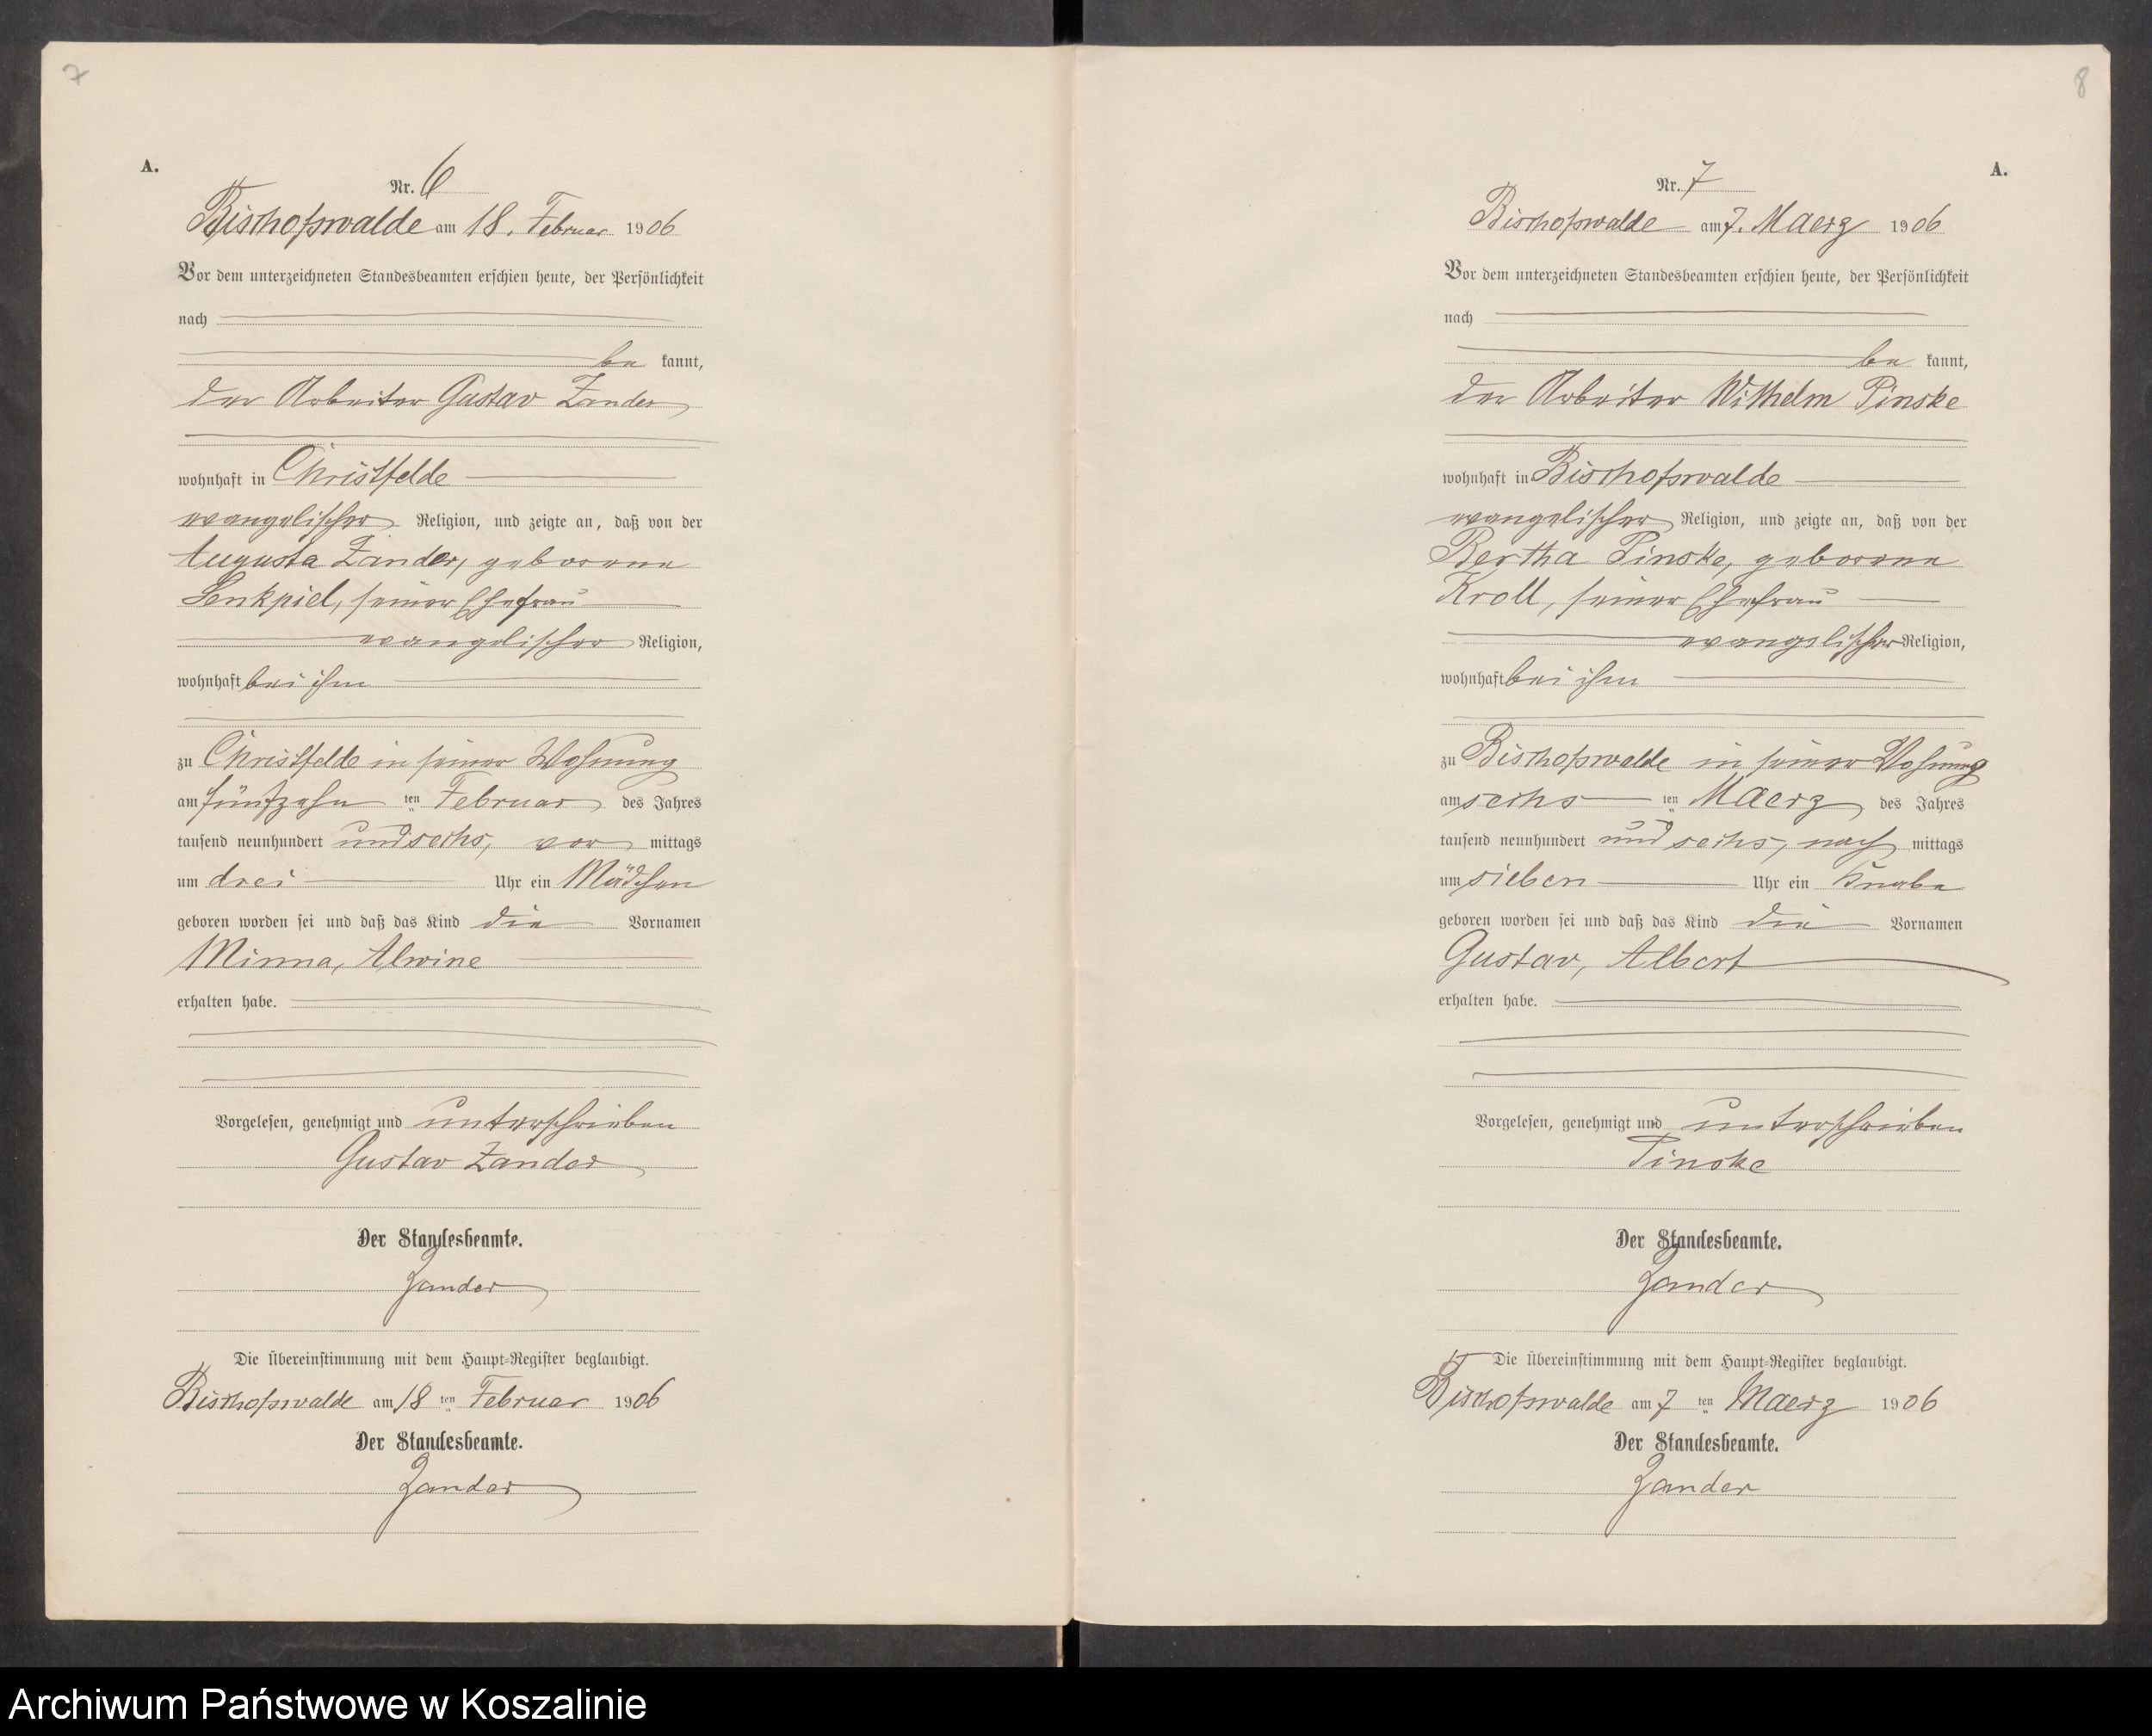 7
A.
Nr. 6
Bischofswalde am 18. Februar 1906
Vor dem unterzeichneten Standesbeamten erschien heute, der Persönlichkeit
nach
be kannt,
der Arbeiter Gustav Zander
wohnhaft in Christfelde
evangelischer Religion, und zeigte an, daß von der
Augusta Zander, geborene
Senkpiel, seiner Ehefrau
evangelischer Religion,
wohnhaft bei ihm
zu Christfelde in seiner Wohnung
am fünfzehn ten Februar des Jahres
tausend neunhundert und sechs, vor mittags
um drei Uhr ein Mädchen
geboren worden sei und daß das Kind die Vornamen
Minna, Alwine
erhalten habe.
Vorgelesen, genehmigt und unterschrieben
Gustav Zander
Der Standesbeamte.
Zander
Die Übereinstimmung mit dem Haupt-Register beglaubigt.
Bischofswalde am 18 ten Februar 1906
Der Standesbeamte.
Zander
8
A.
Nr. 7
Bischofswalde am 7. Maerz 1906
Vor dem unterzeichneten Standesbeamten erschien heute, der Persönlichkeit
nach
be kannt,
der Arbeiter Wilhelm Pinske
wohnhaft in Bischofswalde
evangelischer Religion, und zeigte an, daß von der
Bertha Pinske, geborene
Kroll, seiner Ehefrau
evangelischer Religion,
wohnhaft bei ihm
zu Bischofswalde in seiner Wohnung
am sechs ten Maerz des Jahres
tausend neunhundert und sechs, nach mittags
um sieben Uhr ein Knabe
geboren worden sei und daß das Kind die Vornamen
Gustav, Albert
erhalten habe.
Vorgelesen, genehmigt und unterschrieben
Pinske
Der Standesbeamte.
Zander
Die Übereinstimmung mit dem Haupt-Register beglaubigt.
Bischofswalde am 7 ten Maerz 1906
Der Standesbeamte.
Zander
Archiwum Państwowe w Koszalinie